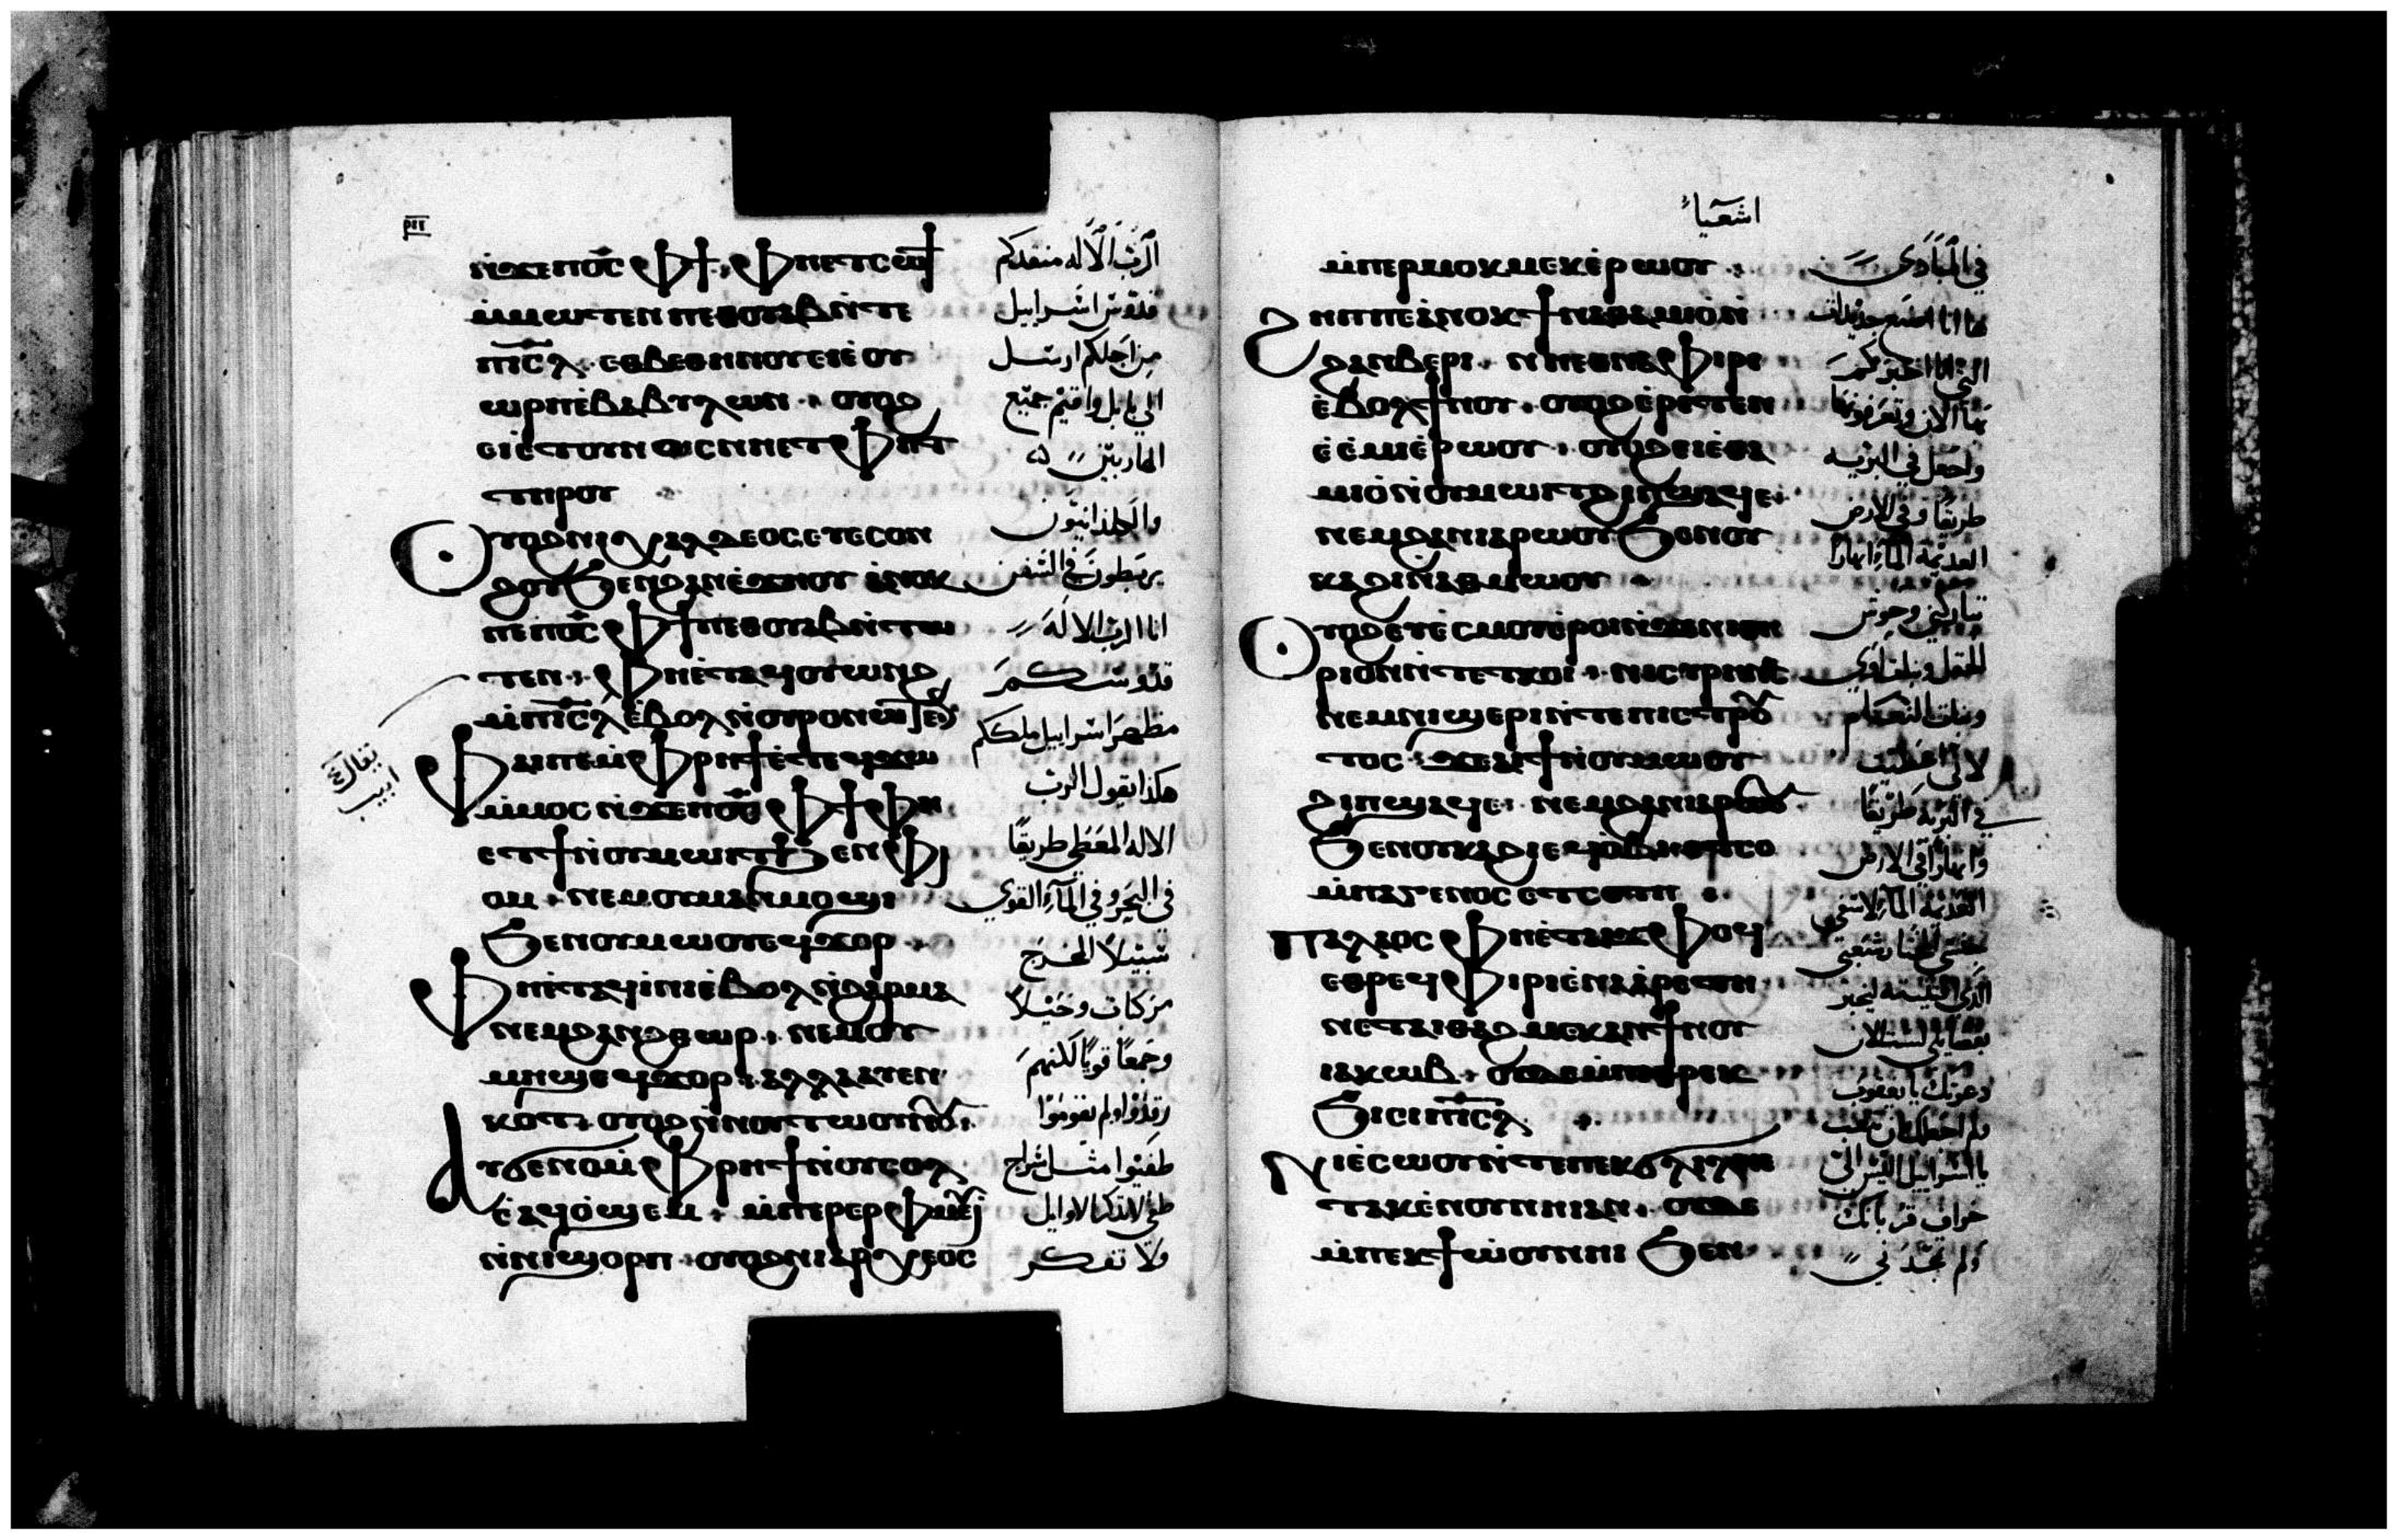 ⲣⲓⲅ
ⲛ̀ϫⲉⲡⲟ̅ⲥ̅ ⲫϯ · ⲫⲏⲉⲧⲥⲱϯ
ⲙ̀ⲙⲱⲧⲉⲛ ⲡⲉⲑⲟⲩⲁⲃ ⲛ̀ⲧⲉ
ⲡⲓ̅ⲥ̅ⲗ̅ · ⲉⲑⲃⲉⲑⲏⲛⲟⲩ ⲉⲓⲉ̀ⲟⲩ
ⲱⲣⲡ ⲉ̀ⲃⲁⲃⲩⲗⲱⲛ · ⲟⲩⲟϩ
ⲉⲓⲉ̀ⲧⲟⲩⲛⲟⲥ ⲛⲏⲉⲧⲫⲏⲧ
ⲧⲏⲣⲟⲩ
ⲟⲩⲟϩ ⲛⲓⲭⲁⲗⲇⲉⲟⲥ ⲉⲩⲉⲥⲟⲛ
ϩⲟⲩ ϧⲉⲛϩⲁⲛⲉ̀ϫⲏⲟⲩ ⲁ̀ⲛⲟⲕ
ⲡⲉ ⲡⲟ̅ⲥ̅ ⲫϯ ⲡⲉⲑⲟⲩⲁⲃ ⲛ̀ⲧⲱ
ⲧⲉⲛ · ⲫⲏⲉ̀ⲧⲁϥⲟⲩⲱⲛϩ
ⲙ̀ⲡⲓ̅ⲥ̅ⲗ̅ ⲉ̀ⲃⲟⲗ ⲛ̀ⲟⲩⲣⲟ ⲛⲱⲧⲉⲛ
ⲫⲁⲓ ⲡⲉ ⲙ̀ⲫⲣⲏϯ ⲉ̀ⲧⲉϥϫⲱ
ⲙ̀ⲙⲟⲥ ⲛ̀ϫⲉⲡⲟ̅ⲥ̅ ⲫϯ ⲫⲏ
ⲉⲧϯ ⲛ̀ⲟⲩⲙⲱⲓⲧ ϧⲉⲛ ⲫⲓ
ⲟⲙ · ⲛⲉⲙ ⲟⲩⲙⲁⲙ̀ⲙⲟϣⲓ
ϧⲉⲛⲟⲩⲙⲱⲟⲩ ⲉϥϫⲟⲣ ·
ⲫⲏⲉ̀ⲧⲁϥⲓⲛⲓ ⲉ̀ⲃⲟⲗ ⲛ̀ϩⲁⲣⲙⲁ
ⲛⲉⲙϩⲁⲛϩⲑⲱⲣ · ⲛⲉⲙⲟⲩ
ⲙⲏϣ ⲉϥϫⲟⲣ · ⲁⲗⲗⲁ ⲁⲩⲉⲛ
ⲕⲟⲧ · ⲟⲩⲟϩ ⲛ̀ⲛⲟⲩⲧⲱⲟⲩⲛⲟⲩ
ⲁⲩϭⲉⲛⲟ ⲙ̀ⲫⲣⲏϯ ⲛ̀ⲟⲩⲥⲟⲗ
ⲉ̀ⲁϥⲟ̀ϣⲉⲙ · ⲙ̀ⲡⲉⲣⲉⲣⲫⲙⲉⲩⲓ
ⲛ̀ⲛⲓϣⲟⲣⲡ · ⲟⲩⲟϩ ⲛⲓⲁⲣⲭⲉⲟⲥ
الرب الاله منقدكم
قدوس اسرابيل
من اجلكم ارسل
الي بابل واقيم جميع
الهاربين
والكلدانيون
يربطون في السفن
انا الرب الاله
قدوسكم
مظهر اسرابيل ملككم
هكذا يقول الرب
الاله المعطي طريقا
في البحر وفي المآء القوي
سبيلا المخرج
مركبات وخيلا
وجمعا قويا لكنهم
رقدوا ولم يقوموا
طفيوا مثل سراج
طفي لا تذكرا الاوايل
ولا تفكر
اشعياء
ⲙ̀ⲡⲉⲣⲙⲟⲕⲙⲉⲕ ⲉ̀ⲣⲱⲟⲩ ·
ϩⲏⲡⲡⲉ ⲁ̀ⲛⲟⲕ ϯⲛⲁⲑⲁⲙⲓⲟ̀ ⲛ̀
ϩⲁⲛⲃⲉⲣⲓ · ⲛⲏⲉⲑⲛⲁⲫⲓⲣⲓ
ⲉ̀ⲃⲟⲗ ϯⲛⲟⲩ · ⲟⲩⲟϩ ⲉ̀ⲣⲉⲧⲉⲛ
ⲉ̀ⲉ̀ⲙⲓ ⲉ̀ⲣⲱⲟⲩ · ⲟⲩⲟϩ ⲉⲓⲉ̀ⲑⲁ
ⲙⲓⲟ̀ ⲛ̀ⲟⲩⲙⲱⲓⲧ ϩⲓⲡϣⲁϥⲉ ·
ⲛⲉⲙϩⲁⲛⲓⲁⲣⲱⲟⲩ ϧⲉⲛⲟⲩ
ⲕⲁϩⲓ ⲛ̀ⲁⲑⲙⲱⲟⲩ ·
ⲟⲩⲟϩ ⲉⲩⲉ̀ⲥⲙⲟⲩ ⲉ̀ⲣⲟⲓ ⲛ̀ϫⲉⲛⲓⲑⲏ
ⲣⲓⲟⲛ ⲛ̀ⲧⲉ ⲧⲕⲟⲓ · ⲛⲓⲥⲩⲣⲓⲛⲟⲥ
ⲛⲉⲙⲛⲓϣⲉⲣⲓ ⲛ̀ⲧⲉ ⲡⲓⲥⲧⲣⲟⲩ
ⲑⲟⲥ · ϫⲉⲁⲓϯ ⲛ̀ⲟⲩⲙⲱⲟⲩ
ϩⲓⲡϣⲁϥⲉ · ⲛⲉⲙϩⲁⲛⲓⲁⲣⲱⲟⲩ
ϧⲉⲛⲟⲩⲕⲁϩⲓ ⲉϥⲟ̀ⲃⲓ ⲉ̀ⲧⲥⲟ
ⲙ̀ⲡⲁⲅⲉⲛⲟⲥ ⲉⲧⲥⲱⲧⲡ ·
ⲡⲁⲗⲁⲟⲥ ⲫⲏⲉ̀ⲧⲁⲓϫⲫⲟϥ
ⲉⲑⲣⲉϥⲫⲓⲣⲓ ⲉ̀ⲛⲁⲁ̀ⲣⲉⲧⲏ ·
ⲛⲉⲧⲁⲓⲑⲁϩⲙⲉⲕ ⲁⲛ ϯⲛⲟⲩ
ⲓⲁⲕⲱⲃ · ⲟⲩⲇⲉ ⲙ̀ⲡⲓⲑⲣⲉⲕ
ϧⲓⲥⲓ ⲡⲓ̅ⲥ̅ⲗ̅
ⲛⲓⲉ̀ⲥⲱⲟⲩ ⲛ̀ⲧⲉ ⲡⲉⲕϭⲗⲓⲗ ⲛⲏ
ⲉⲧⲁⲕⲉ̀ⲛⲟⲩ ⲛⲏⲓ ⲁⲛ · ⲟⲩⲇⲉ
ⲙ̀ⲡⲉⲕϯⲱ̀ⲟⲩ ⲛⲏⲓ ϧⲉⲛ
في المبادي
التي انا اخبركم
بها الان وتعرفونها
واجعل في البرية
طريقا وفي الارض
العديمة المآء انهارا
تباركني وحوش
الحقل وبنات اوي
وبنات النعام
لاني اعطيت
في البرية طريقا
وانهارا في الارض
العديمة المآء لاسقي
جنسي المختار شعبي
الذي اقتنيته ليخبر
بفضايلي لست الان
دعوتك يا يعقوب
يا اسرابيل ليس الي
خراف قربانك
ولم تمجدني